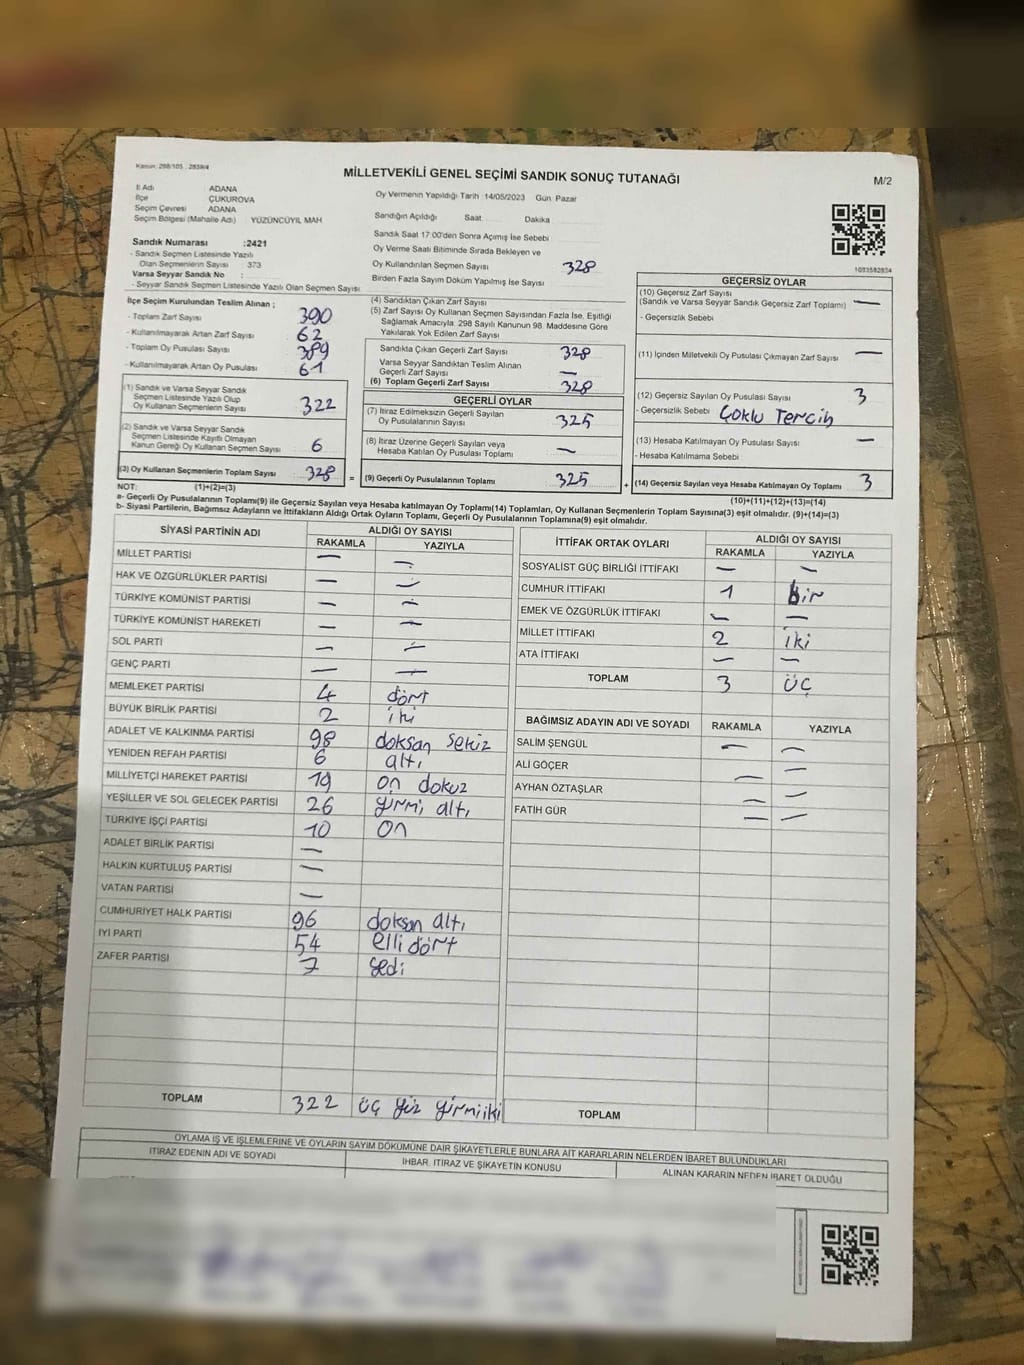 Kanun: 298/105 : 2839/4
MİLLETVEKİLİ GENEL SEÇİMİ SANDIK SONUÇ TUTANAĞI
M/2
İl Adı : ADANA
İlçe : ÇUKUROVA
Seçim Çevresi : ADANA
Seçim Bölgesi (Mahalle Adı) : YÜZÜNCÜYIL MAH
Sandık Numarası :2421
- Sandık Seçmen Listesinde Yazılı
Olan Seçmenlerin Sayısı : 373
Varsa Seyyar Sandık No :
- Seyyar Sandık Seçmen Listesinde Yazılı Olan Seçmen Sayısı
Oy Vermenin Yapıldığı Tarih :14/05/2023 Gün Pazar
Sandığın Açıldığı Saat Dakika
Sandık Saat 17:00'den Sonra Açımış İse Sebebi
Oy Verme Saati Bitiminde Sırada Bekleyen ve
Oy Kullandırılan Seçmen Sayısı 328
Birden Fazla Sayım Döküm Yapılmış İse Sayısı
1033582834
İlçe Seçim Kurulundan Teslim Alınan ;
- Toplam Zarf Sayısı 390
- Kullanılmayarak Artan Zarf Sayısı 62
- Toplam Oy Pusulası Sayısı 389
- Kullanılmayarak Artan Oy Pusulası 61
(1) Sandık ve Varsa Seyyar Sandık
Seçmen Listesinde Yazılı Olup
Oy Kullanan Seçmenlerin Sayısı 322
(2) Sandık ve Varsa Seyyar Sandık
Seçmen Listesinde Kayıtlı Olmayan
Kanun Gereği Oy Kullanan Seçmen Sayısı 6
(3) Oy Kullanan Seçmenlerin Toplam Sayısı 328 =
(4) Sandıktan Çıkan Zarf Sayısı
(5) Zarf Sayısı Oy Kullanan Seçmen Sayısından Fazla İse, Eşitliği
Sağlamak Amacıyla, 298 Sayılı Kanunun 98. Maddesine Göre
Yakılarak Yok Edilen Zarf Sayısı
Sandıkta Çıkan Geçerli Zarf Sayısı 328
Varsa Seyyar Sandıktan Teslim Alınan
Geçerli Zarf Sayısı —
(6) Toplam Geçerli Zarf Sayısı 328
GEÇERLİ OYLAR
(7) İtiraz Edilmeksizin Geçerli Sayılan
Oy Pusulalarının Sayısı 325
(8) İtiraz Üzerine Geçerli Sayılan veya
Hesaba Katılan Oy Pusulası Toplamı —
(9) Geçerli Oy Pusulalarının Toplamı 325 +
GEÇERSİZ OYLAR
(10) Geçersiz Zarf Sayısı
(Sandık ve Varsa Seyyar Sandık Geçersiz Zarf Toplamı) —
- Geçersizlik Sebebi
(11) İçinden Milletvekili Oy Pusulası Çıkmayan Zarf Sayısı —
(12) Geçersiz Sayılan Oy Pusulası Sayısı 3
- Geçersizlik Sebebi Çoklu Tercih
(13) Hesaba Katılmayan Oy Pusulası Sayısı —
- Hesaba Katılmama Sebebi
(14) Geçersiz Sayılan veya Hesaba Katılmayan Oy Toplamı 3
NOT: (1)+(2)=(3)
(10)+(11)+(12)+(13)=(14)
a- Geçerli Oy Pusulalarının Toplamı(9) ile Geçersiz Sayılan veya Hesaba katılmayan Oy Toplamı(14) Toplamları, Oy Kullanan Seçmenlerin Toplam Sayısına(3) eşit olmalıdır. (9)+(14)=(3)
b- Siyasi Partilerin, Bağımsız Adayların ve İttifakların Aldığı Ortak Oyların Toplamı, Geçerli Oy Pusulalarının Toplamına(9) eşit olmalıdır.
SİYASİ PARTİNİN ADI ALDIĞI OY SAYISI
RAKAMLA YAZIYLA
MİLLET PARTİSİ — —
HAK VE ÖZGÜRLÜKLER PARTİSİ — —
TÜRKİYE KOMÜNİST PARTİSİ — —
TÜRKİYE KOMÜNİST HAREKETİ — —
SOL PARTİ — —
GENÇ PARTİ — —
MEMLEKET PARTİSİ 4 dört
BÜYÜK BİRLİK PARTİSİ 2 iki
ADALET VE KALKINMA PARTİSİ 98 doksan sekiz
YENİDEN REFAH PARTİSİ 6 altı
MİLLİYETÇİ HAREKET PARTİSİ 19 on dokuz
YEŞİLLER VE SOL GELECEK PARTİSİ 26 yirmi altı
TÜRKİYE İŞÇİ PARTİSİ 10 on
ADALET BİRLİK PARTİSİ —
HALKIN KURTULUŞ PARTİSİ —
VATAN PARTİSİ —
CUMHURİYET HALK PARTİSİ 96 doksan altı
İYİ PARTİ 54 elli dört
ZAFER PARTİSİ 7 yedi
TOPLAM 322 üç yüz yirmiiki
İTTİFAK ORTAK OYLARI ALDIĞI OY SAYISI
RAKAMLA YAZIYLA
SOSYALİST GÜÇ BİRLİĞİ İTTİFAKI — —
CUMHUR İTTİFAKI 1 bir
EMEK VE ÖZGÜRLÜK İTTİFAKI — —
MİLLET İTTİFAKI 2 iki
ATA İTTİFAKI — —
TOPLAM 3 üç
BAĞIMSIZ ADAYIN ADI VE SOYADI RAKAMLA YAZIYLA
SALİM ŞENGÜL — —
ALİ GÖÇER — —
AYHAN ÖZTAŞLAR — —
FATİH GÜR — —
TOPLAM
OYLAMA İŞ VE İŞLEMLERİNE VE OYLARIN SAYIM DÖKÜMÜNE DAİR ŞİKAYETLERLE BUNLARA AİT KARARLARIN NELERDEN İBARET BULUNDUKLARI
İTİRAZ EDENİN ADI VE SOYADI İHBAR, İTİRAZ VE ŞİKAYETİN KONUSU ALINAN KARARIN NEDEN İBARET OLDUĞU